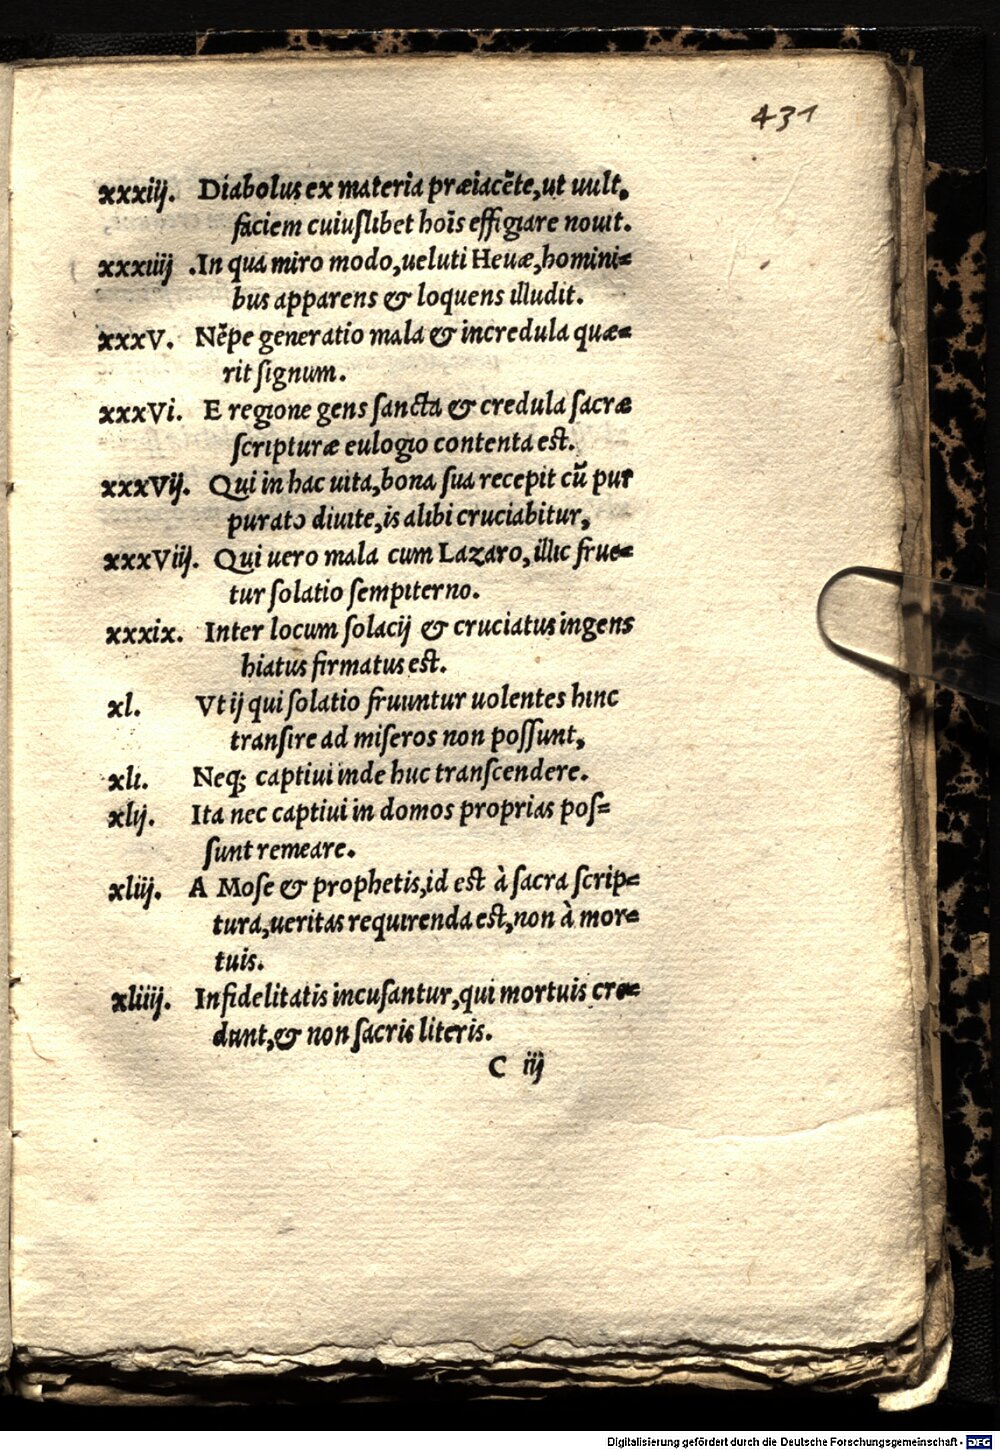 431
xxxiij. Diabolus ex materia præiacēte,ut uult,
faciem cuiuſlibet hoīs effigiare nouit.
xxxiiij .In qua miro modo,ueluti Heuæ,homini=
bus apparens & loquens illudit.
xxxV. Nēpe generatio mala & incredula quæ=
rit ſignum.
xxxVi. E regione gens ſancta & credula ſacræ
ſcripturæ eulogio contenta est.
xxxVij. Qui in hac uita,bona ſua recepit cū pur
purato diuite,is alibi cruciabitur,
xxxViij. Qui uero mala cum Lazaro, illic frue=
tur ſolatio ſempiterno.
xxxix. Inter locum ſolacij & cruciatus ingens
hiatus firmatus est.
xl. Vt ij qui ſolatio fruuntur uolentes hinc
tranſire ad miſeros non poſſunt,
xli. Neq; captiui inde huc tranſcendere.
xlij. Ita nec captiui in domos proprias poſ=
ſunt remeare.
xliij. A Moſe & prophetis,id est à ſacra ſcrip=
tura,ueritas requirenda est,non à mor=
tuis.
xliiij. Infidelitatis incuſantur,qui mortuis cre=
dunt,& non ſacris literis.
C iij
Digitalisierung gefördert durch die Deutsche Forschungsgemeinschaft - DFG